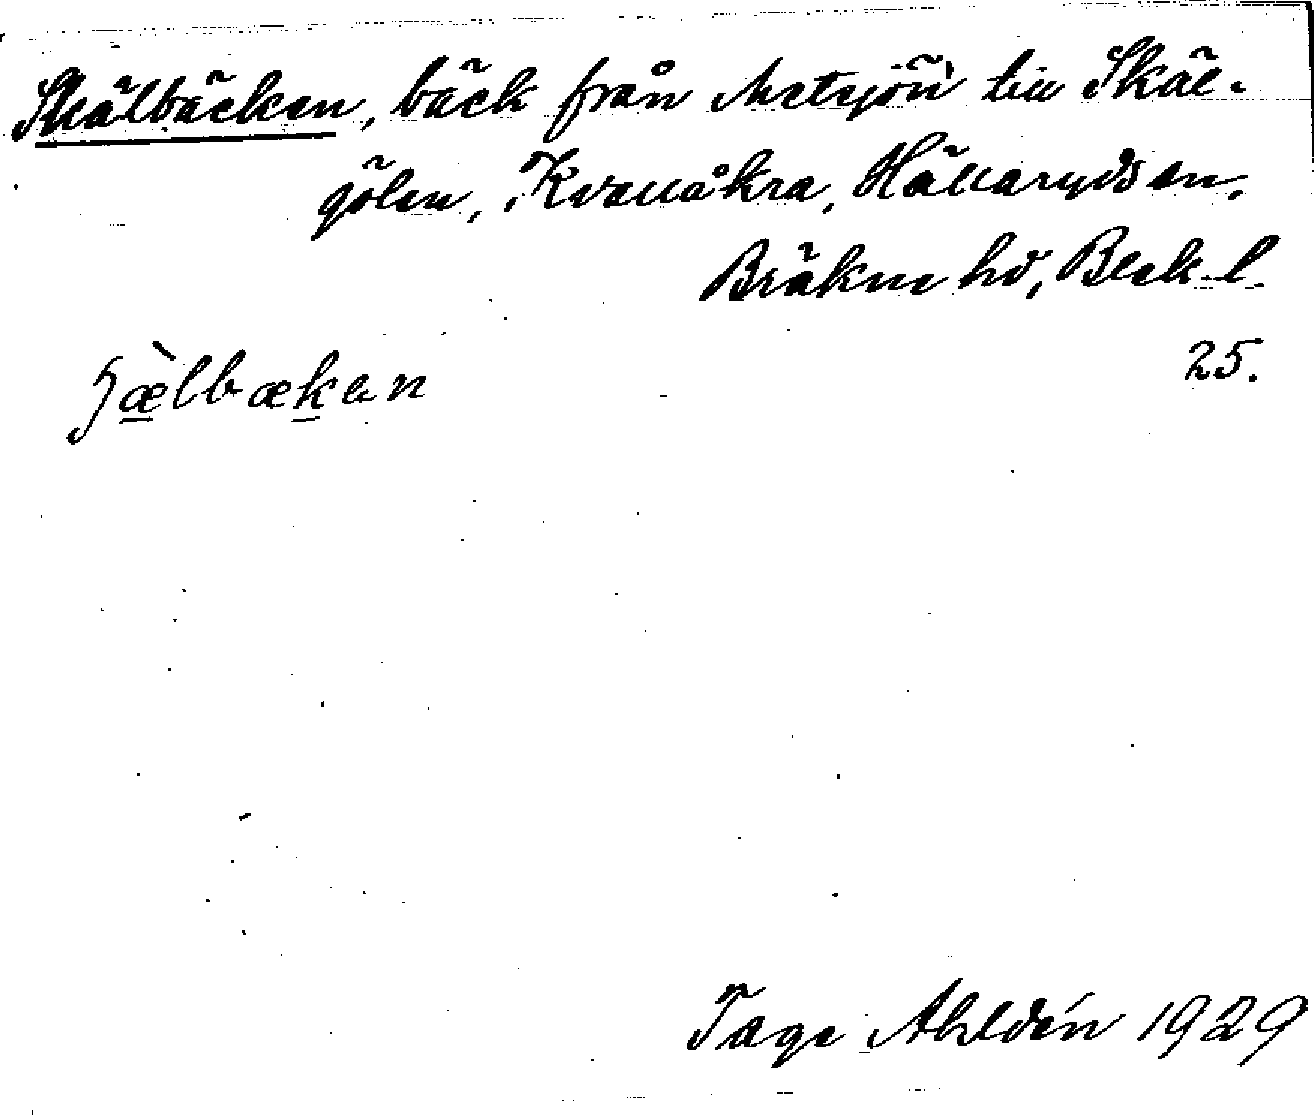 Skälbäcken, bäck från Metsjön till Skäl-
gölen, Kvallåkra, Hällaryds sn,
Bräkne hd, Blek. l.
25.
ʃæ̀lbækan
Tage Ahldén 1929